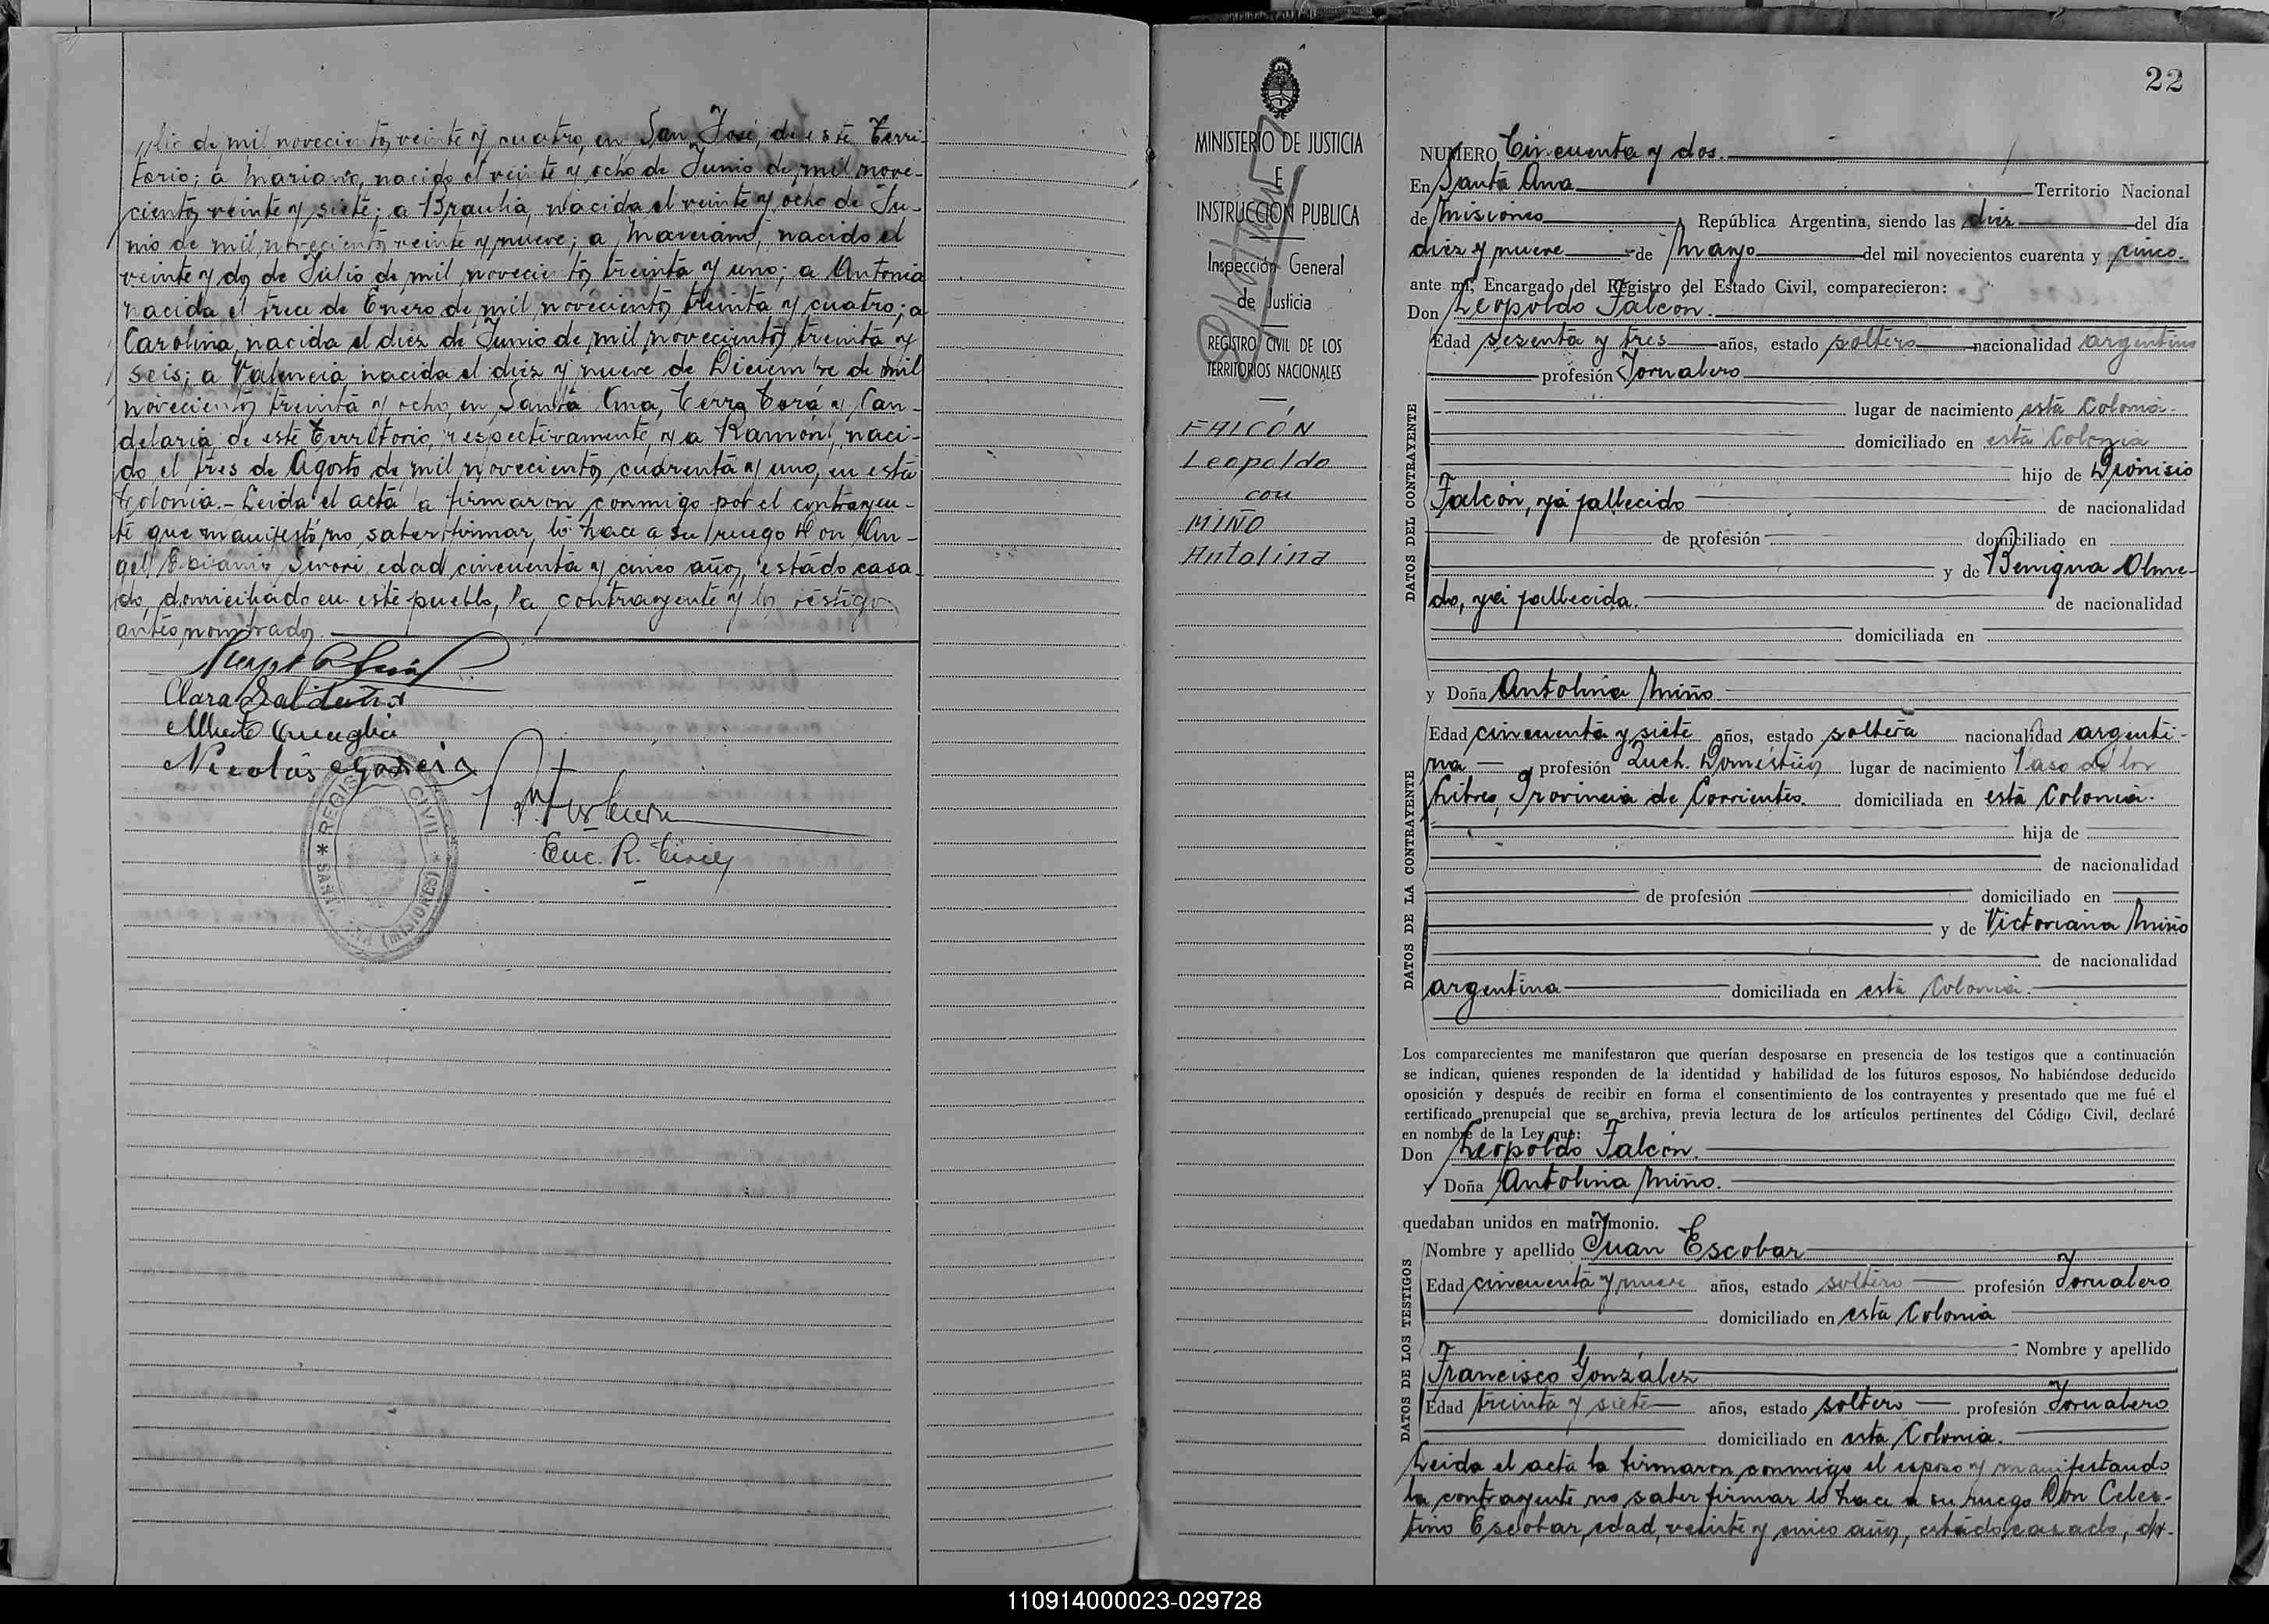 de mil novecientos veinte y cuatro, en San José, de este Terri-
torio; a Mariano, nacido el veinte y ocho de Junio de mil nove-
cientos veinte y siete; a Braulia, nacida el veinte y ocho de Ju-
nio de mil novecientos veinte y nueve; a Marciano, nacido el
veinte y dos de Julio de mil novecientos treinta y uno; a Antonia
nacida el trece de Enero de mil novecientos treinta y cuatro; a
Carolina, nacida el diez de Junio de mil novecientos treinta y
seis; a Valencia, nacida el diez y nueve de Diciembre de mil
novecientos treinta y ocho, en Santa Ana, Cerro Corá y Can-
delaria de este Territorio, respectivamente, y a Ramón, naci-
do el tres de Agosto de mil novecientos cuarenta y uno, en esta
Colonia.- Leida el acta la firmaron conmigo por el contrayen-
te que manifestó no saber firmar, lo hace a su ruego Don An-
gel Epifanio edad cincuenta y cinco años, estado casa-
do, domiciliado en este pueblo, la contrayente y los testigos
antes nombrados.
Clara
Alberto
Nicolás Garcia
Enc. R. Civil
* REGIS CIVIL *
SANTA ANA (MISIONES)
MINISTERIO DE JUSTICIA
E
INSTRUCCION PUBLICA
Inspección General
de Justicia
REGISTRO CIVIL DE LOS
TERRITORIOS NACIONALES
FALCÓN
Leopoldo
con
MIÑO
Antolina
22
NUMERO Cincuenta y dos.
En Santa Ana Territorio Nacional
de Misiones República Argentina, siendo las diez del día
diez y nueve de Mayo del mil novecientos cuarenta y cinco.
ante mí, Encargado del Registro del Estado Civil, comparecieron:
Don Leopoldo Falcón.
DATOS DEL CONTRAYENTE
Edad sesenta y tres años, estado soltero nacionalidad argentino
profesión Jornalero
lugar de nacimiento esta Colonia.
domiciliado en esta Colonia
hijo de Dionisio
Falcón, ya fallecido de nacionalidad
de profesión domiciliado en
y de Benigna Olme-
do, ya fallecida. de nacionalidad
domiciliada en
y Doña Antolina Miño.
DATOS DE LA CONTRAYENTE
Edad cincuenta y siete años, estado soltera nacionalidad argenti-
na profesión Queh. Domésticos lugar de nacimiento Paso de los
Libres, Provincia de Corrientes. domiciliada en esta Colonia.
hija de
de nacionalidad
de profesión domiciliado en
y de Victoriana Miño
de nacionalidad
argentina domiciliada en esta Colonia.
Los comparecientes me manifestaron que querían desposarse en presencia de los testigos que a continuación
se indican, quienes responden de la identidad y habilidad de los futuros esposos. No habiéndose deducido
oposición y después de recibir en forma el consentimiento de los contrayentes y presentado que me fué el
certificado prenupcial que se archiva, previa lectura de los artículos pertinentes del Código Civil, declaré
en nombre de la Ley que:
Don Leopoldo Falcón.
y Doña Antolina Miño.
quedaban unidos en matrimonio.
DATOS DE LOS TESTIGOS
Nombre y apellido Juan Escobar
Edad cincuenta y nueve años, estado soltero profesión Jornalero
domiciliado en esta Colonia
Nombre y apellido
Francisco González
Edad treinta y siete años, estado soltero profesión Jornalero
domiciliado en esta Colonia.
Leida el acta la firmaron conmigo el esposo y manifestando
la contrayente no saber firmar lo hace a su ruego Don Celes-
tino Escobar, edad, veinte y cinco años, estado casado, do-
110914000023-029728